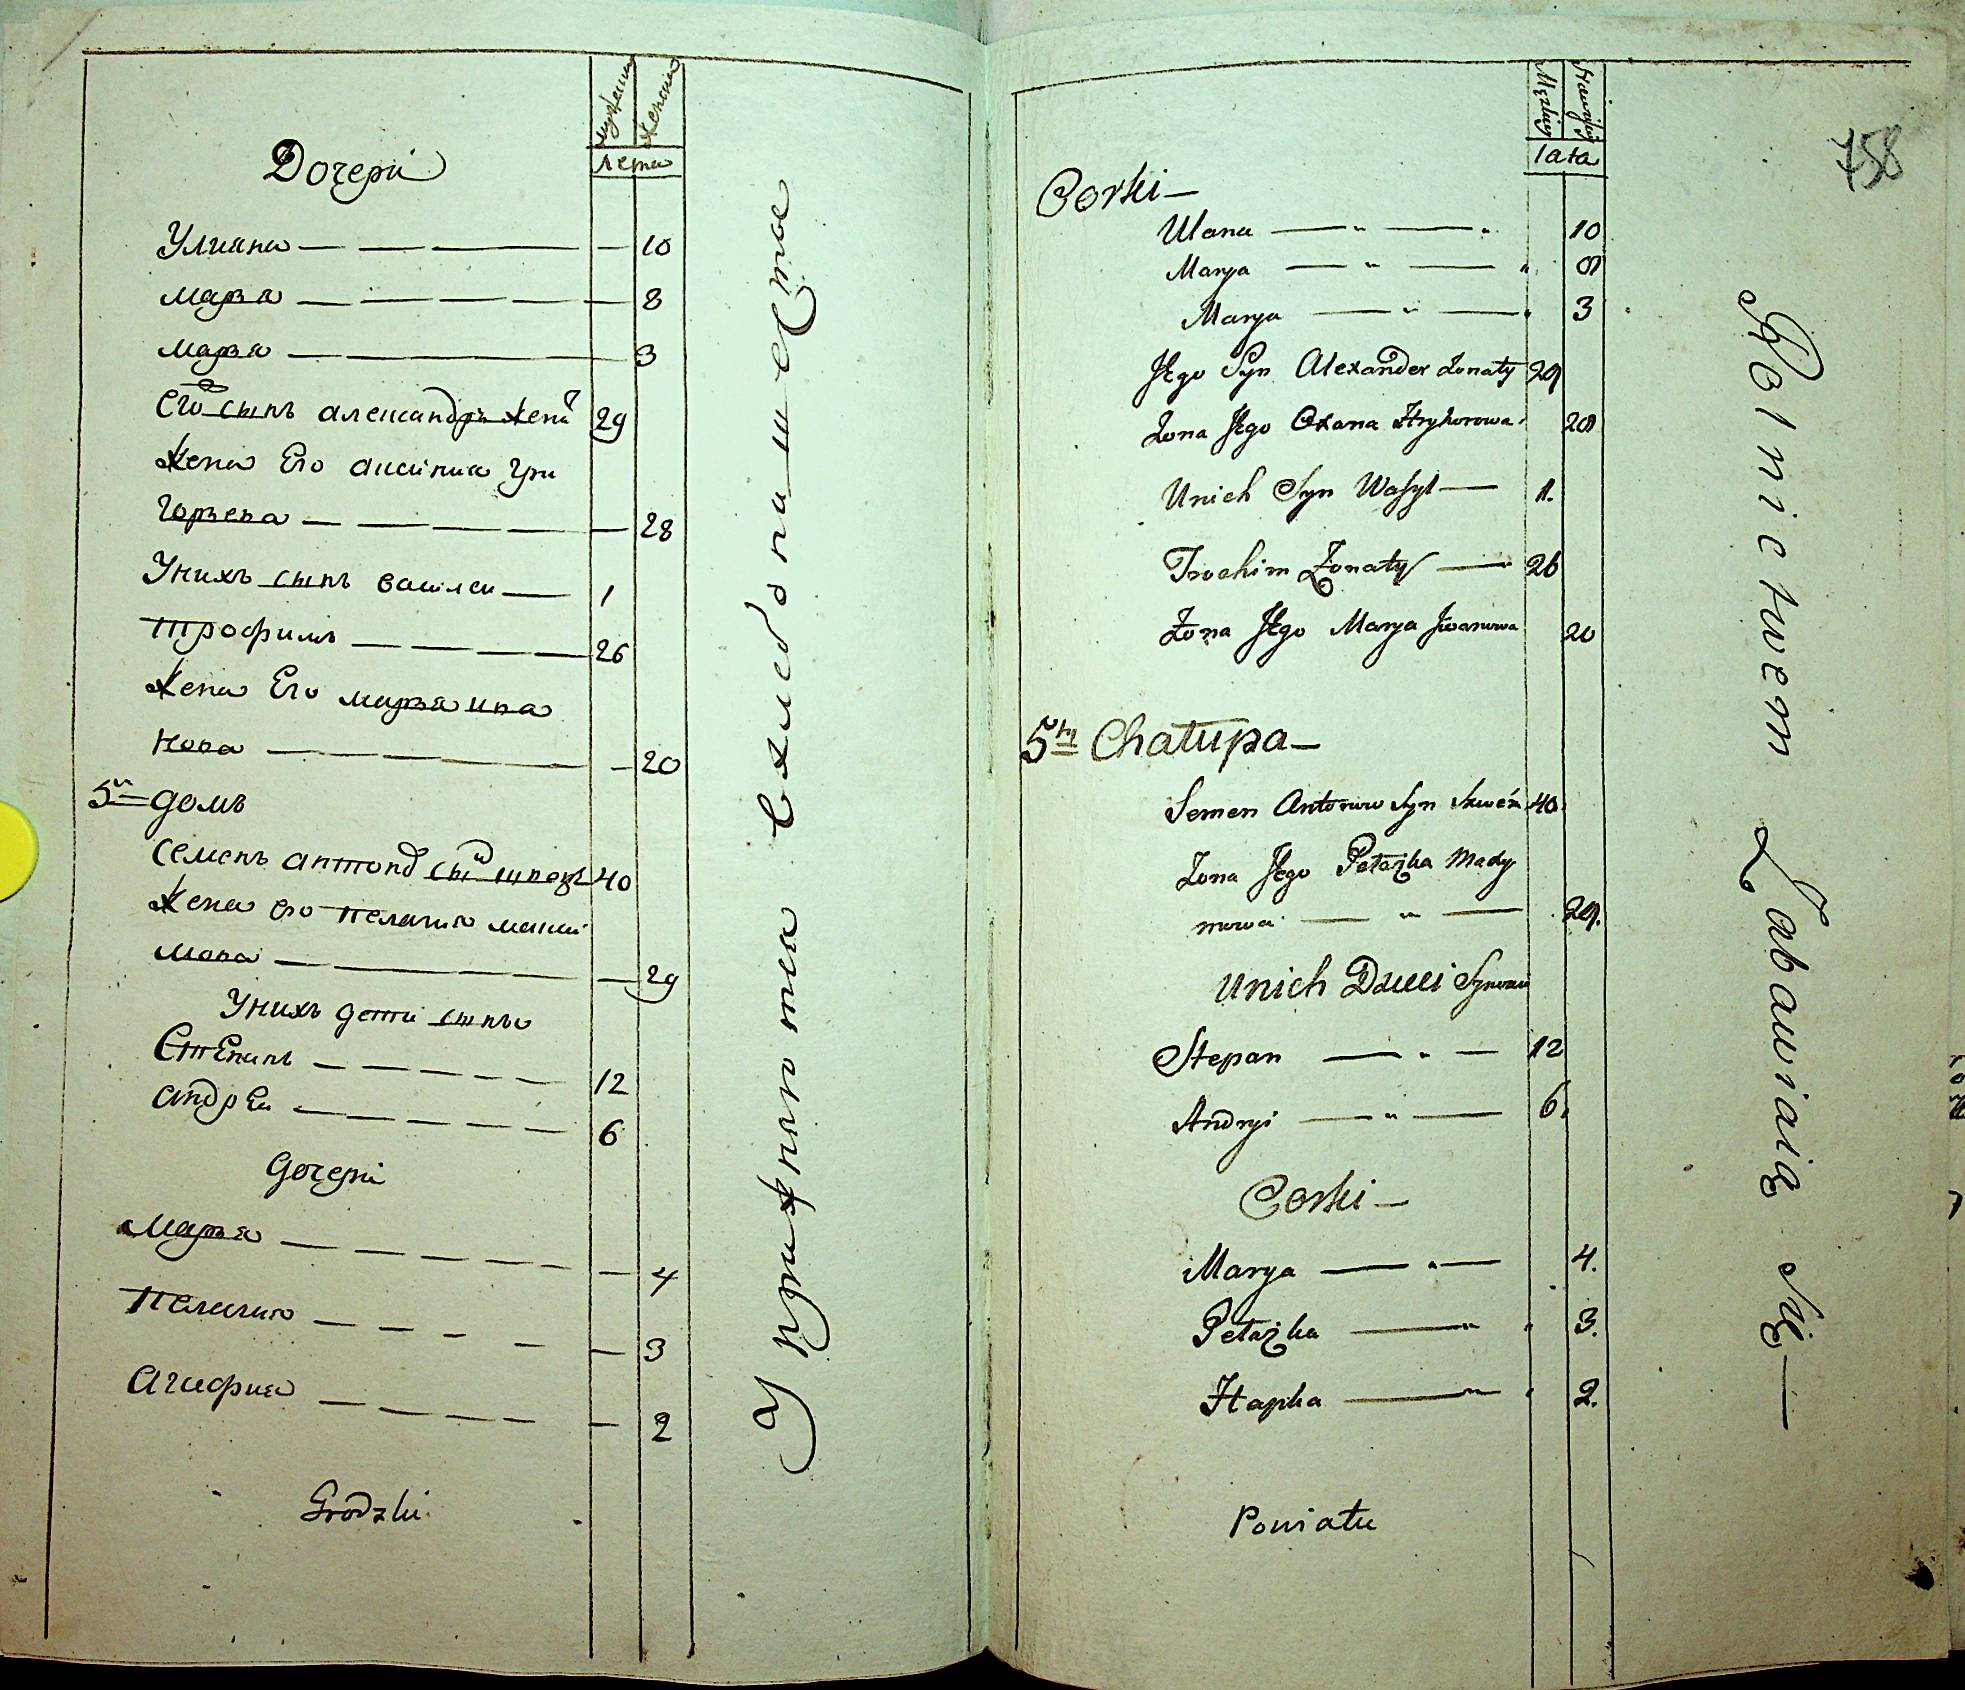 мужеска
женска
лета
Дочери
Улияна — — — — 10
Марья — — — — 8
Марья — — 3
Его сынъ александръ жена 29
Жена Его
горьева — — — — 28
Унихъ сынъ василеи — 1
трофимъ — — — — 26
Жена Его марья ива
нова — — — — 20
5й домъ
Семенъ антонов сын швецъ 40
Жена его пелагия макси
мова — — — — 29
Унихъ дети сынъ
Степанъ — — — — 12
андреи — — — — 6
дочери
Марья — — — — 4
Пелагию — — — 3
Агафия — — — — 2
Grodzki
Упражняются в хлебопашестве
758
Męzkiey
lata
Corki —
Ulana — " — " 10
Marya — " — " 8
Marya — " — " 3
Jego Syn Alexander Żonaty 29
Żona Jego Oxana Hryhorowa 28
Unich Syn Wasyl — 1.
Trochim Żonaty — 26
Żona Jego Marya Jwanowa 20
5ta Chałupa —
Semen Antonow Syn Szwéc 40.
Żona Jego Pełażka Mady
mowa — " — 29.
Unich Dzieci Synowie
Stepan — " — 12
Andryi — " — 6.
Corki —
Marya — " — 4.
Pełażka — " " 3.
Hapka — " " 2.
Powiatu
Rolnictwem Zabawiaią się —